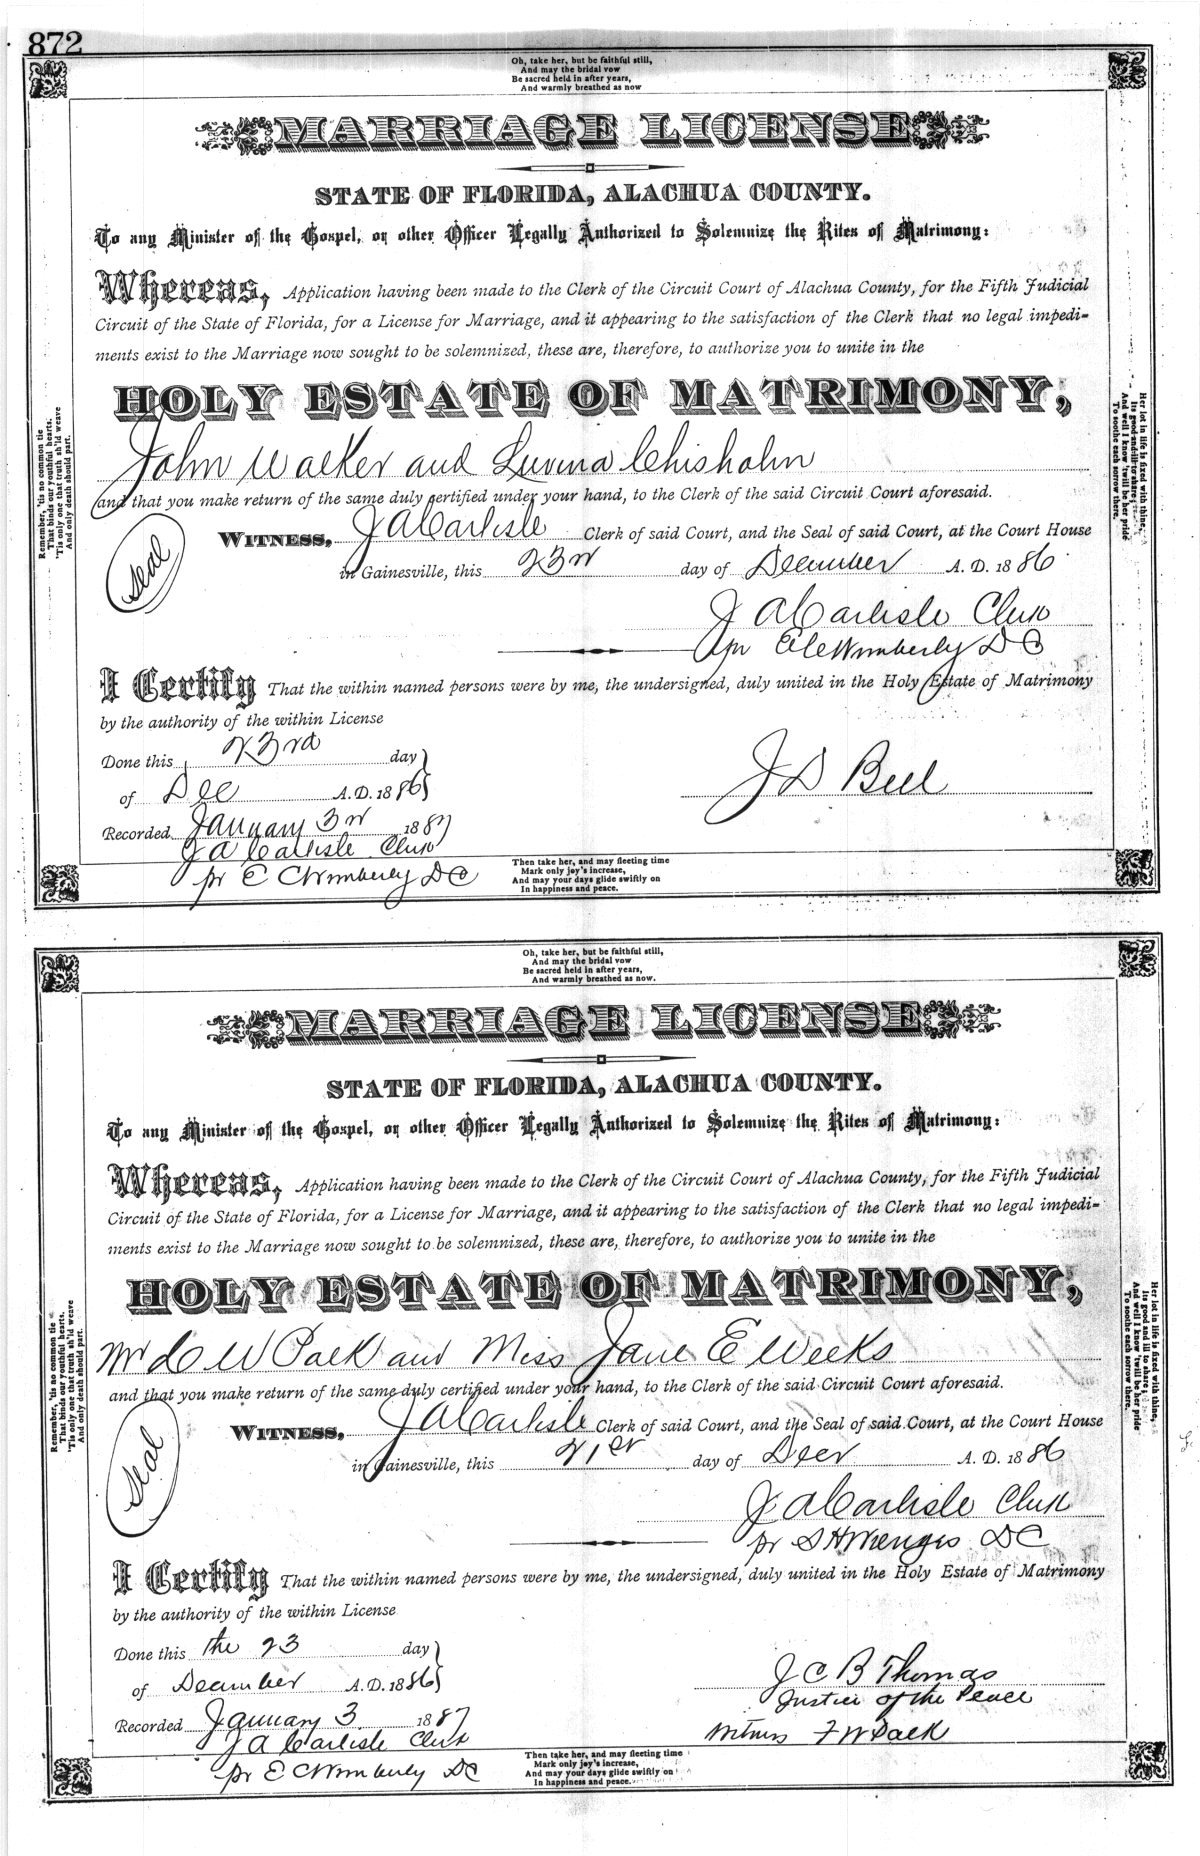 872
Oh, take her, but be faithful still,
And may the bridal vow
Be sacred held in after years,
And warmly breathed as now
MARRIAGE LICENSE
STATE OF FLORIDA, ALACHUA COUNTY.
To any Minister of the Gospel, or other Officer Legally Authorized to Solemnize the Rites of Matrimony:
Whereas, Application having been made to the Clerk of the Circuit Court of Alachua County, for the Fifth Judicial
Circuit of the State of Florida, for a License for Marriage, and it appearing to the satisfaction of the Clerk that no legal impedi-
ments exist to the Marriage now sought to be solemnized, these are, therefore, to authorize you to unite in the
HOLY ESTATE OF MATRIMONY,
John Walker and Luvina Chisholm
and that you make return of the same duly certified under your hand, to the Clerk of the said Circuit Court aforesaid.
(Seal)
WITNESS, J A Carlisle Clerk of said Court, and the Seal of said Court, at the Court House
in Gainesville, this 23rd day of December A. D. 1886
J A Carlisle Clerk
pr E C Wimberly D C
I Certify That the within named persons were by me, the undersigned, duly united in the Holy Estate of Matrimony
by the authority of the within License
Done this 23rd day
of Dec A. D. 1886
J D Bell
Recorded January 3rd 1887
J A Carlisle Clerk
pr E C Wimberly D C
Remember, 'tis no common tie
That binds our youthful hearts.
'Tis only one that truth sh'ld weave
And only death should part.
Her lot in life is fixed with thine,
Its good and ill to share;
And well I know 'twill be her pride
To soothe each sorrow there.
Then take her, and may fleeting time
Mark only joy's increase,
And may your days glide swiftly on
In happiness and peace.
Oh, take her, but be faithful still,
And may the bridal vow
Be sacred held in after years,
And warmly breathed as now.
MARRIAGE LICENSE
STATE OF FLORIDA, ALACHUA COUNTY.
To any Minister of the Gospel, or other Officer Legally Authorized to Solemnize the Rites of Matrimony:
Whereas, Application having been made to the Clerk of the Circuit Court of Alachua County, for the Fifth Judicial
Circuit of the State of Florida, for a License for Marriage, and it appearing to the satisfaction of the Clerk that no legal impedi-
ments exist to the Marriage now sought to be solemnized, these are, therefore, to authorize you to unite in the
HOLY ESTATE OF MATRIMONY,
Mr C W Palk and Miss Jane E Weeks
and that you make return of the same duly certified under your hand, to the Clerk of the said Circuit Court aforesaid.
(Seal)
WITNESS, J A Carlisle Clerk of said Court, and the Seal of said Court, at the Court House
in Gainesville, this 21st day of Decr A. D. 1886
J A Carlisle Clerk
pr S H Wienges D C
I Certify That the within named persons were by me, the undersigned, duly united in the Holy Estate of Matrimony
by the authority of the within License
Done this the 23 day
of December A. D. 1886
J C B Thomas
Justice of the Peace
Witness F W Palk
Recorded January 3 1887
J A Carlisle Clerk
pr E C Wimberly D C
Remember, 'tis no common tie
That binds our youthful hearts.
'Tis only one that truth sh'ld weave
And only death should part.
Her lot in life is fixed with thine,
Its good and ill to share;
And well I know 'twill be her pride
To soothe each sorrow there.
Then take her, and may fleeting time
Mark only joy's increase,
And may your days glide swiftly on
In happiness and peace.